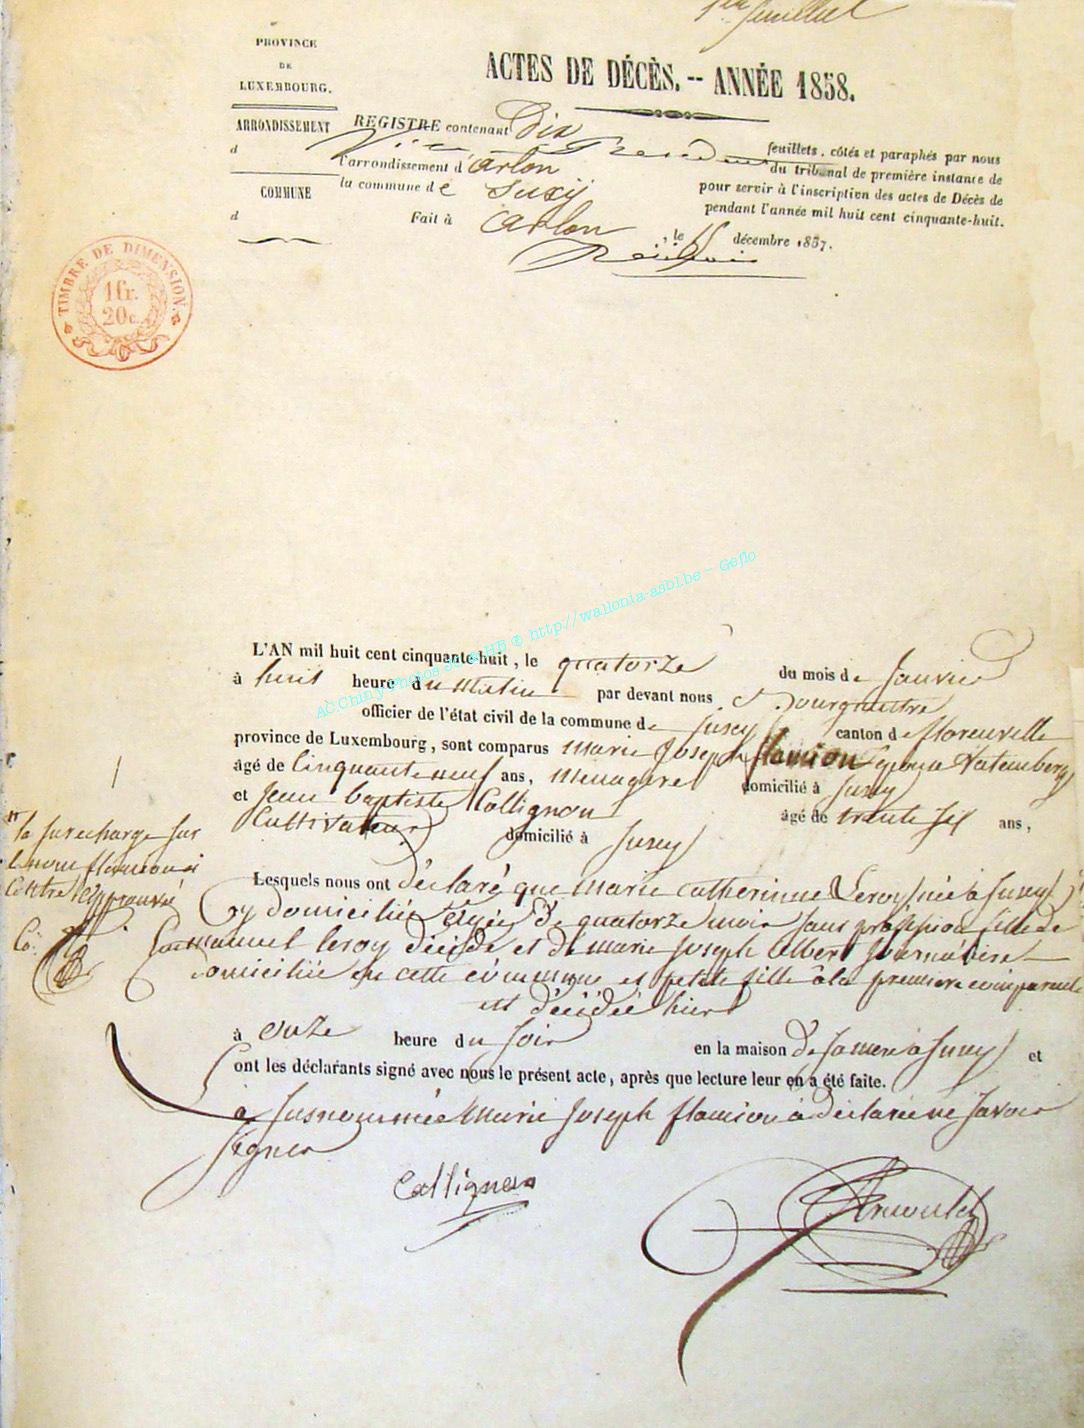 1er feuillet
PROVINCE
DE
LUXEMBOURG.
ARRONDISSEMENT
d
COMMUNE
d
ACTES DE DÉCÈS. -- ANNÉE 1858.
REGISTRE contenant Dix feuillets, côtés et paraphés par nous
Vice Président du tribunal de première instance de
l'arrondissement d'arlon pour servir à l'inscription des actes de Décès de
la commune de Suxy pendant l'année mil huit cent cinquante-huit.
Fait à arlon, le 15 décembre 1857.
TIMBRE DE DIMENSION
1 fr.
20 c.
AC.Chiny Photos JC & HB @ http://wallonia-asbl.be – Geflo
L'AN mil huit cent cinquante-huit, le quatorze du mois de Janvier
à huit heure du matin par devant nous Bourgmestre
officier de l'état civil de la commune de Suxy canton de florenville
province de Luxembourg, sont comparus marie Joseph flamion épouse
âgé de Cinquante neuf ans, menagere domicilié à Suxy
et Jean baptiste Collignon âgé de trente six ans,
Cultivateur domicilié à Suxy
la surcharge sur
le nom flamion ci
Contre approuvé
Lesquels nous ont déclaré que marie catherinne Leroy née à Suxy
y domiciliée agée de quatorze mois sans profession fille de
Emmanuel leroy décédé et de marie Joseph albert Journalière
domiciliée en cette commune et petite fille à la première comparante
est décédée hier
à onze heure du soir en la maison de sa mere à Suxy et
ont les déclarants signé avec nous le présent acte, après que lecture leur en a été faite.
la susnommée marie Joseph flamion à déclarée ne savoir
signer
Collignon
Arnould